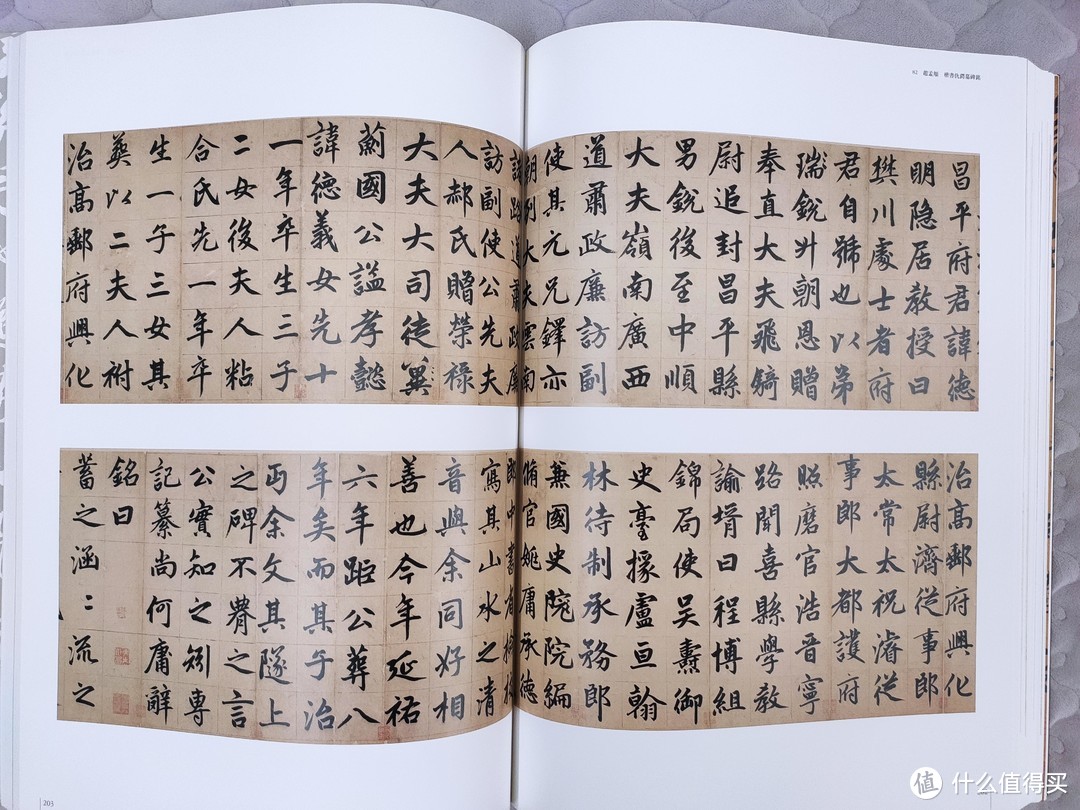 61 趙孟頫 楷書仇鍔墓碑銘
昌平府君諱德
明隐居教授曰
樊川處士者府
君自號也以弟
瑞銳升朝恩贈
奉直大夫飛騎
尉追封昌平縣
男銳後至中順
大夫嶺南廣西
道肅政廉訪副
使其元兄鐸亦
朝列大夫雲南
諸路道肅政廉
訪副使公先夫
人郝氏贈榮祿
大夫大司徒冀
薊國公謚孝懿
諱德義女先十
一年卒生三子
二女後夫人粘
合氏先一年卒
生一子三女其
葬以二夫人祔
治高郵府興化
治高郵府興化
縣尉濟從事郎
太常太祝濬從
事郎大都護府
照磨官浩晋寧
路聞喜縣學教
諭壻曰程博組
錦局使吴燾御
史臺掾盧亘翰
林待制承務郎
兼國史院院編
脩官姚庸承德
郎中書
寫其山水之清
音與余同好相
善也今年延祐
六年距公葬八
年矣而其子治
丐余文其隧上
之碑不費之言
公實知之矧專
記纂尚何庸辭
銘曰
蓄之涵二流之
203
值 什么值得买